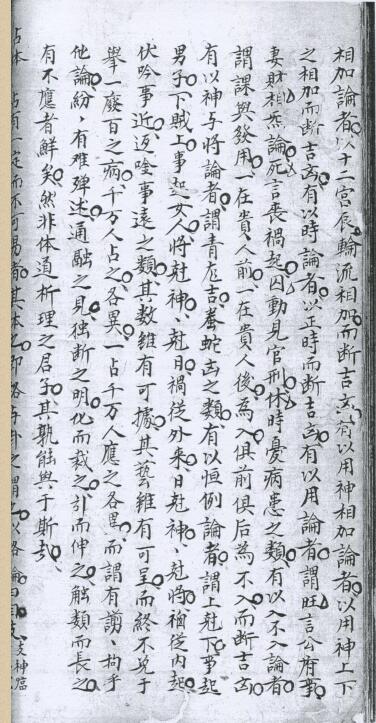 相加論者以十二宮辰輪流相加而断吉凶有以用神相加論者以用神上下
之相加而断吉凶有以時論者以正時而断吉凶有以用論者謂旺言公府事
妻財相炁論死言丧禍起囚動見官刑休時憂病患之類有以入不入論者
謂課與發用一在貴人前一在貴人後為入俱前俱后為不入而断吉凶
有以神与將論者謂青龙吉螣蛇凶之類有以恒例論者謂上尅下事起
男子下賊上事起女人將尅神、尅日禍從外来日尅神、尅將禍從内起
伏吟事近返唫事遠之類其数維有可據其藝維有可呈而終不免于
舉一廢百之病千万人占之各異一占千万人應之各異而謂有謭、拘乎
他論紛、有难殫述通融之一見独断之明化而裁之引而伸之触類而長之
有不應者鮮矣然非体道析理之君子其孰能與于斯哉
占体 占有一定而不可易者其体之